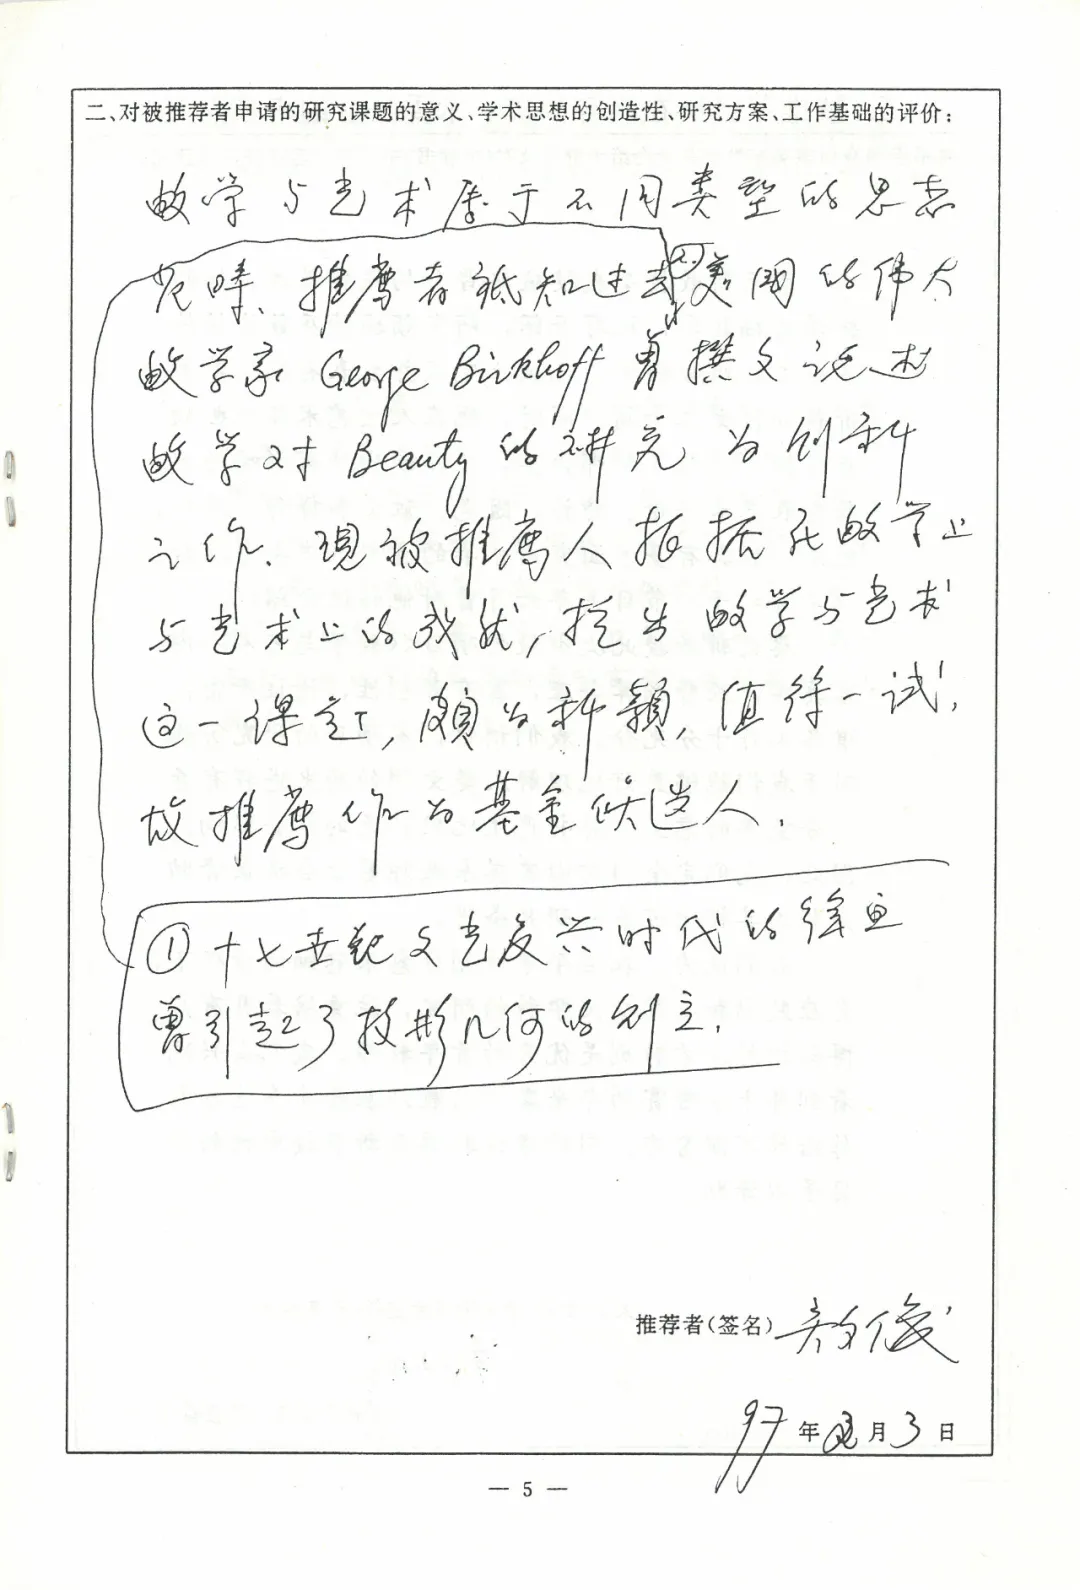 二、对被推荐者申请的研究课题的意义、学术思想的创造性、研究方案、工作基础的评价：
数学与艺术属于不同类型的思想
范畴、推荐者祗知过去美国的伟大
数学家 George Birkhoff 曾撰文论述
数学对 Beauty 的研究为创新
之作、现被推荐人根据在数学上
与艺术上的成就，提出数学与艺术
这一课题，颇为新颖，值得一试，
故推荐作为基金候选人．
① 十七世纪文艺复兴时代的绘画
曾引起了投影几何的创立．
推荐者(签名)
97 年 月 3 日
— 5 —